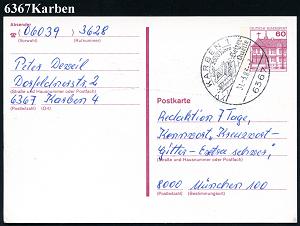 6367Karben
Absender
(06039) 3628
(Vorwahl) (Rufnummer)
DEUTSCHE BUNDESPOST
60
KARBEN
6367
Peter
Dorfelderstr. 2
(Straße und Hausnummer oder Postfach)
6367 Karben 4
(Postleitzahl) (Ort)
Postkarte
Redaktion 7 Tage,
Kennwort "Kreuzwort-
Gitter - Extra schwer",
(Straße und Hausnummer oder Postfach)
8000 München 100
(Postleitzahl) (Bestimmungsort)